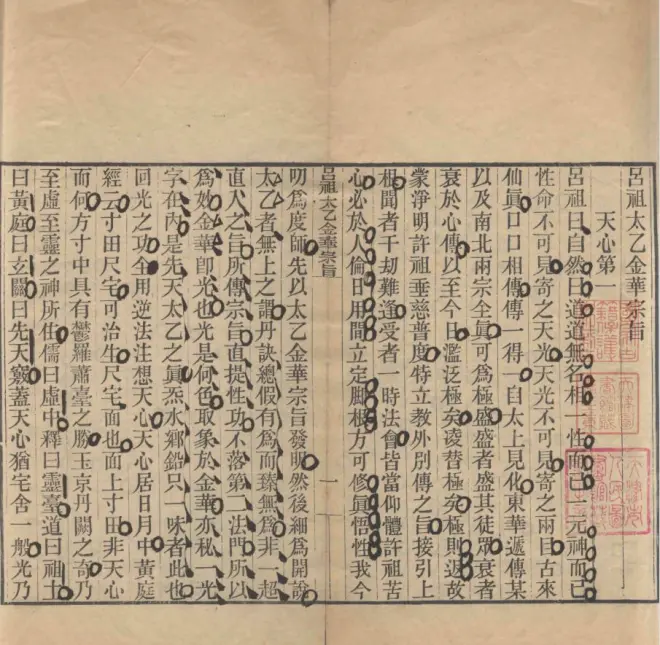 呂祖太乙金華宗旨
天心第一
呂祖曰自然曰道道無名相一性而已一元神而已
性命不可見寄之天光天光不可見寄之兩目古來
仙眞口口相傳傳一得一自太上見化東華遞傳某
以及南北兩宗全眞可爲極盛盛者盛其徒眾衰者
衰於心傳以至今日濫泛極矣凌替極矣極則返故
蒙淨明許祖垂慈普度特立教外別傳之旨接引上
根聞者千劫難逢受者一時法會皆當仰體許祖苦
心必於人倫日用間立定腳根方可修眞悟性我今
呂祖太乙金華宗旨 一
叨爲度師先以太乙金華宗旨發明然後細爲開說
太乙者無上之謂丹訣總假有爲而臻無爲非一超
直入之旨所傳宗旨直提性功不落第二法門所以
爲妙金華卽光也光是何色取象於金華亦秘一光
字在內是先天太乙之眞炁水鄉鉛只一味者此也
回光之功全用逆法注想天心天心居日月中黃庭
經云寸田尺宅可治生尺宅面也面上寸田非天心
而何方寸中具有鬱羅蕭臺之勝玉京丹闕之奇乃
至虛至靈之神所住儒曰虛中釋曰靈臺道曰祖土
曰黃庭曰玄關曰先天竅葢天心猶宅舍一般光乃